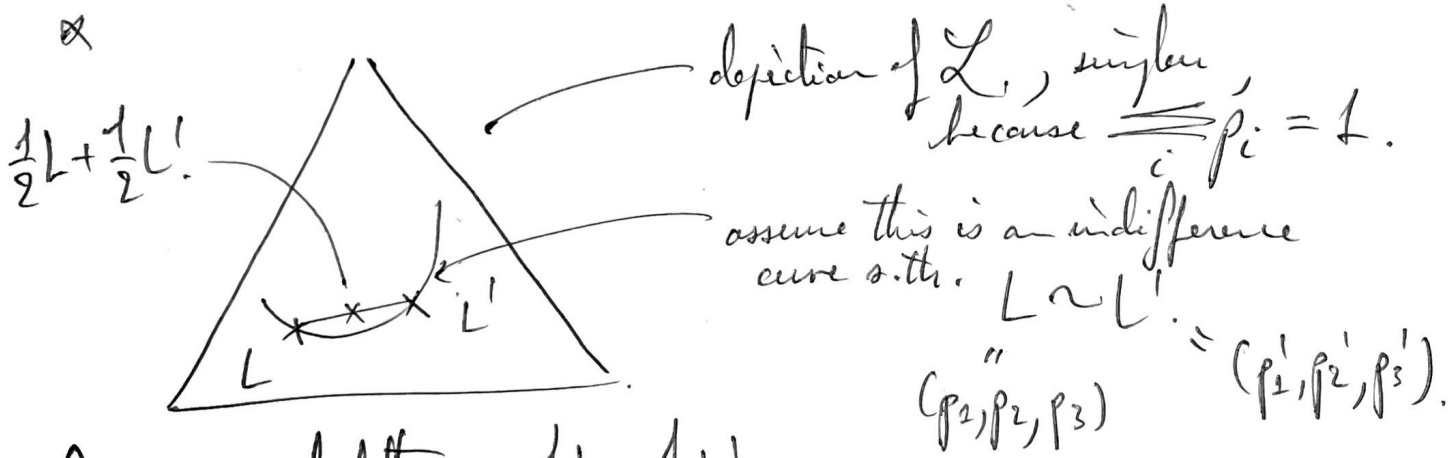 depiction of ℒ, simplex,
because ∑_i p_i = 1.
½L + ½L'.
assume this is an indifference
curve s.th. L ~ L'.
L'
L
" = (p1', p2', p3').
(p1, p2, p3)